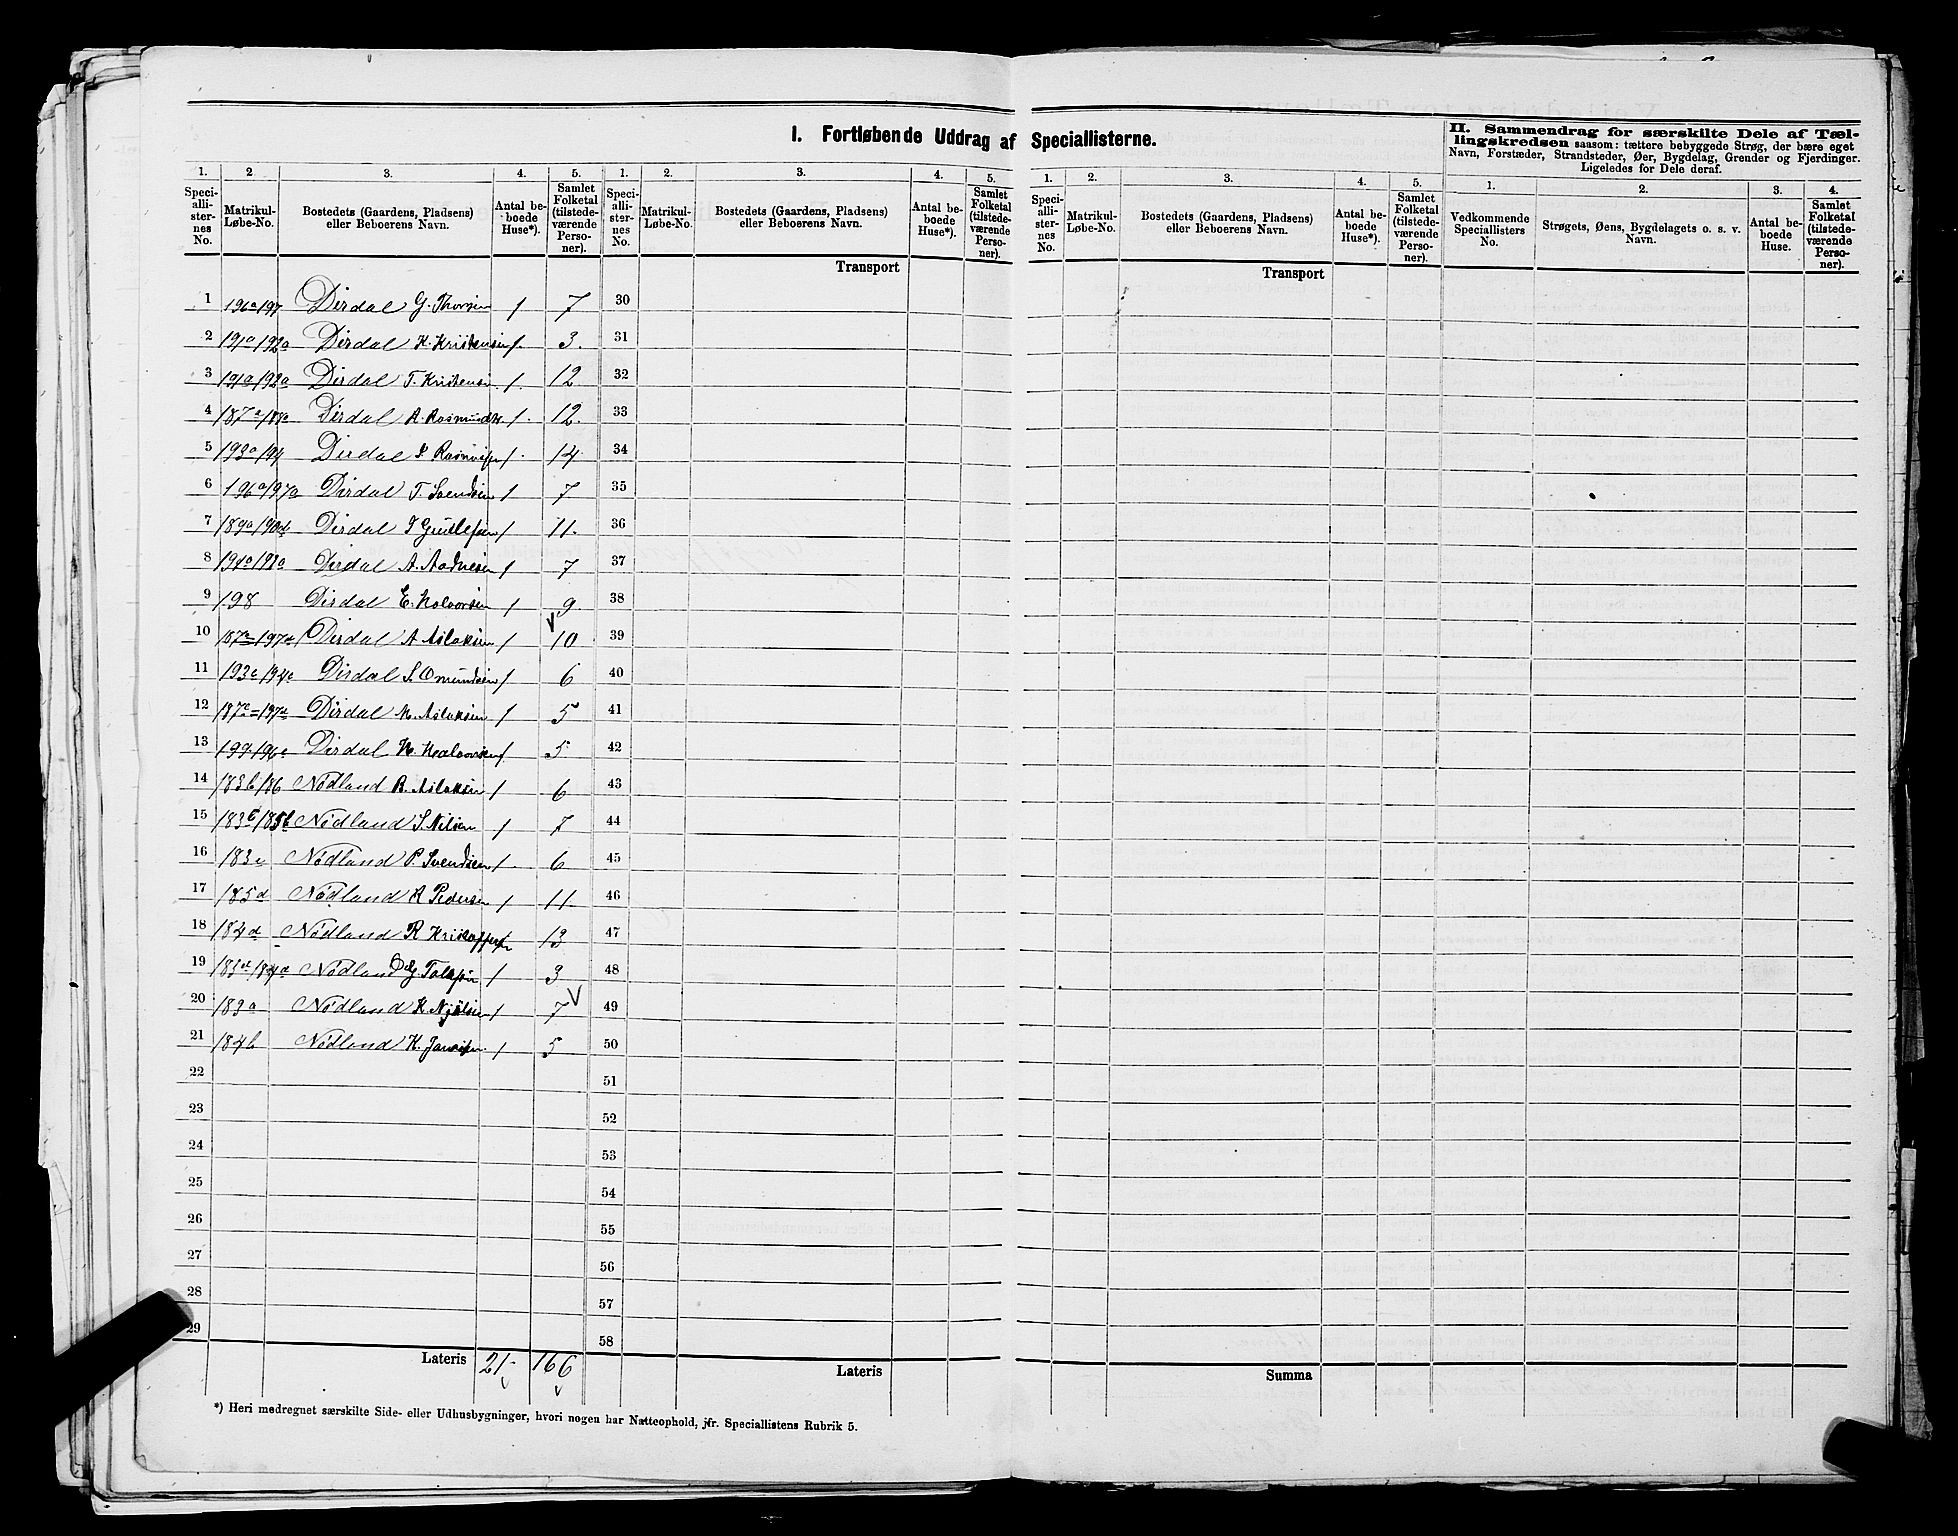 I. Fortløbende Uddrag af Speciallisterne.
II. Sammendrag for særskilte Dele af Tæl-
lingskredsen saasom: tættere bebyggede Strøg, der bære eget
Navn, Forstæder, Strandsteder, Øer, Bygdelag, Grender og Fjerdinger.
Ligeledes for Dele deraf.
1. 2 3. 4. 5. 1. 2. 3. 4. 5. 1. 2. 3. 4. 5. 1. 2. 3. 4.
Speci-
alli-
ster-
nes
No.
Matrikul-
Løbe-No.
Bostedets (Gaardens, Pladsens)
eller Beboerens Navn.
Antal be-
boede
Huse*).
Samlet
Folketal
(tilstede-
værende
Perso-
ner).
Speci-
alli-
ster-
nes
No.
Matrikul-
Løbe-No.
Bostedets (Gaardens, Pladsens)
eller Beboerens Navn.
Antal be-
boede
Huse*).
Samlet
Folketal
(tilstede-
værende
Perso-
ner).
Speci-
alli-
ster-
nes
No.
Matrikul-
Løbe-No.
Bostedets (Gaardens, Pladsens)
eller Beboerens Navn.
Antal be-
boede
Huse*).
Samlet
Folketal
(tilstede-
værende
Perso-
ner).
Vedkommende
Speciallisters
No.
Strøgets, Øens, Bygdelagets o. s. v.
Navn.
Antal be-
boede
Huse.
Samlet
Folketal
(tilstede-
værende
Perso-
ner).
Transport Transport
1 196a 197 Dirdal G. Thorsen 1 7 30
2 191a 192a Dirdal K. Kristensen 1. 3. 31
3 191a 192a Dirdal T. Kristensen 1. 12 32
4 187a/188a Dirdal A. Rasmunds. 1. 12. 33
5 193a/194 Dirdal 1. 14 34
6 196a/197a Dirdal T. Svendsen 1 7 35
7 189a/190d Dirdal 1 11. 36
8 Dirdal A. Aadnesen 1 7 37
9 198 Dirdal E. Halvorsen 1 9 38
10 187a=197a Dirdal A Aslaksen 1 10 39
11 193c 194c Dirdal S. Omundsen 1 6 40
12 187c=197d Dirdal M. Aslaksen 1 5 41
13 Dirdal H. Halvorsen 1 5 42
14 183b/186 Nødland R. Aslaksen 1 6 43
15 183b/185b Nødland S. Nilsen 1 7 44
16 183c Nødland P. Svendsen 1 6 45
17 185d Nødland A Pedersen 1 11 46
18 184d Nødland R Kristoffersen 13 47
19 183d/184a Nødland G Tollefsen 1 3 48
20 183a Nødland K. Njålsen 1 7 49
21 184b Nødland K. 1 5 50
22 51
23 52
24 53
25 54
26 55
27 56
28 57
29 58
Lateris 21- 166 Lateris Summa
*) Heri medregnet særskilte Side- eller Udhusbygninger, hvori nogen har Natteophold, jfr. Speciallistens Rubrik 5.